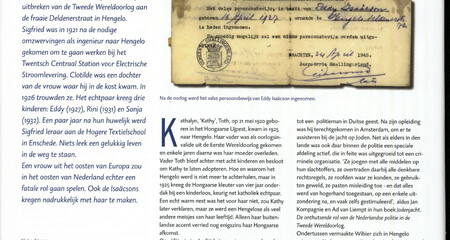 uitbreken van de Tweede Wereldoorlog aan
de fraaie Deldenerstraat in Hengelo.
Sigfried was in 1921 na de nodige
omzwervingen als ingenieur naar Hengelo
gekomen om te gaan werken bij het
Twentsch Centraal Station voor Electrische
Stroomlevering. Clotilde was een dochter
van de vrouw waar hij in de kost kwam. In
1926 trouwen ze. Het echtpaar kreeg drie
kinderen: Eddy (1927), Rini (1931) en Sonja
(1932). Een paar jaar na hun huwelijk werd
Sigfried leraar aan de Hogere Textielschool
in Enschede. Niets leek een gelukkig leven
in de weg te staan.
Een vrouw uit het oosten van Europa zou
in het oosten van Nederland echter een
fatale rol gaan spelen. Ook de Isaäcsons
kregen nadrukkelijk met haar te maken.
Het valse persoonsbewijs, in
geboren 16 April 1927
is heden ingenomen.
zoo spoedig mogelijk zal een nieuw persoonsbewijs worden
24 April 1945.
Na de oorlog werd het valse persoonsbewijs van Eddy Isaäcson ingenomen.
Kethalyn, 'Kathy', Toth, op 21 mei 1920 geboren
in het Hongaarse Ujpest, kwam in 1925
naar Hengelo. Haar vader was als oorlogsinvalide
uit de eerste Wereldoorlog gekomen
en enkele jaren daarna was haar moeder overleden.
Vader Toth bleef achter met acht kinderen en besloot
om Kathy te laten adopteren. Hoe en waarom het
Hengelo werd is niet meer te achterhalen, maar in
1925 kreeg de Hongaarse kleuter van vier jaar onderdak
bij een kinderloos, keurig net katholiek echtpaar.
Een echt warm nest was het voor haar niet, zou Kathy
later verklaren, maar ze werd een Hengelose als veel
andere meisjes van haar leeftijd. Alleen haar buitenlandse
accent verried nog enigszins haar Hongaarse
afkomst.
tot een politieman in Duitse geest. Na zijn opleiding
was hij terechtgekomen in Amsterdam, en er te
assisteren bij de jacht op Joden. Net als elders in den
lande was ook daar binnen de politie een speciale
afdeling actief, die in feite was uitgegroeid tot een criminele
organisatie. 'Ze joegen met alle middelen op
hun slachtoffers, ze overtraden daarbij alle denkbare
rechtsregels, ze roofden waar ze konden, ze gebruikten
geweld, ze pasten misleiding toe - en dat alles
werd van hogerhand toegestaan, op een enkele uitzondering
na, zolang het ook maar enigszins bijdroeg
aan de gewenste eindoplossing', aldus Jan
Kompagnie en Ad van Liempt in hun boek Jodenjacht.
De onthutsende rol van de Nederlandse politie in de
Tweede Wereldoorlog.
Ondertussen vermaakte Wibier zich in Hengelo